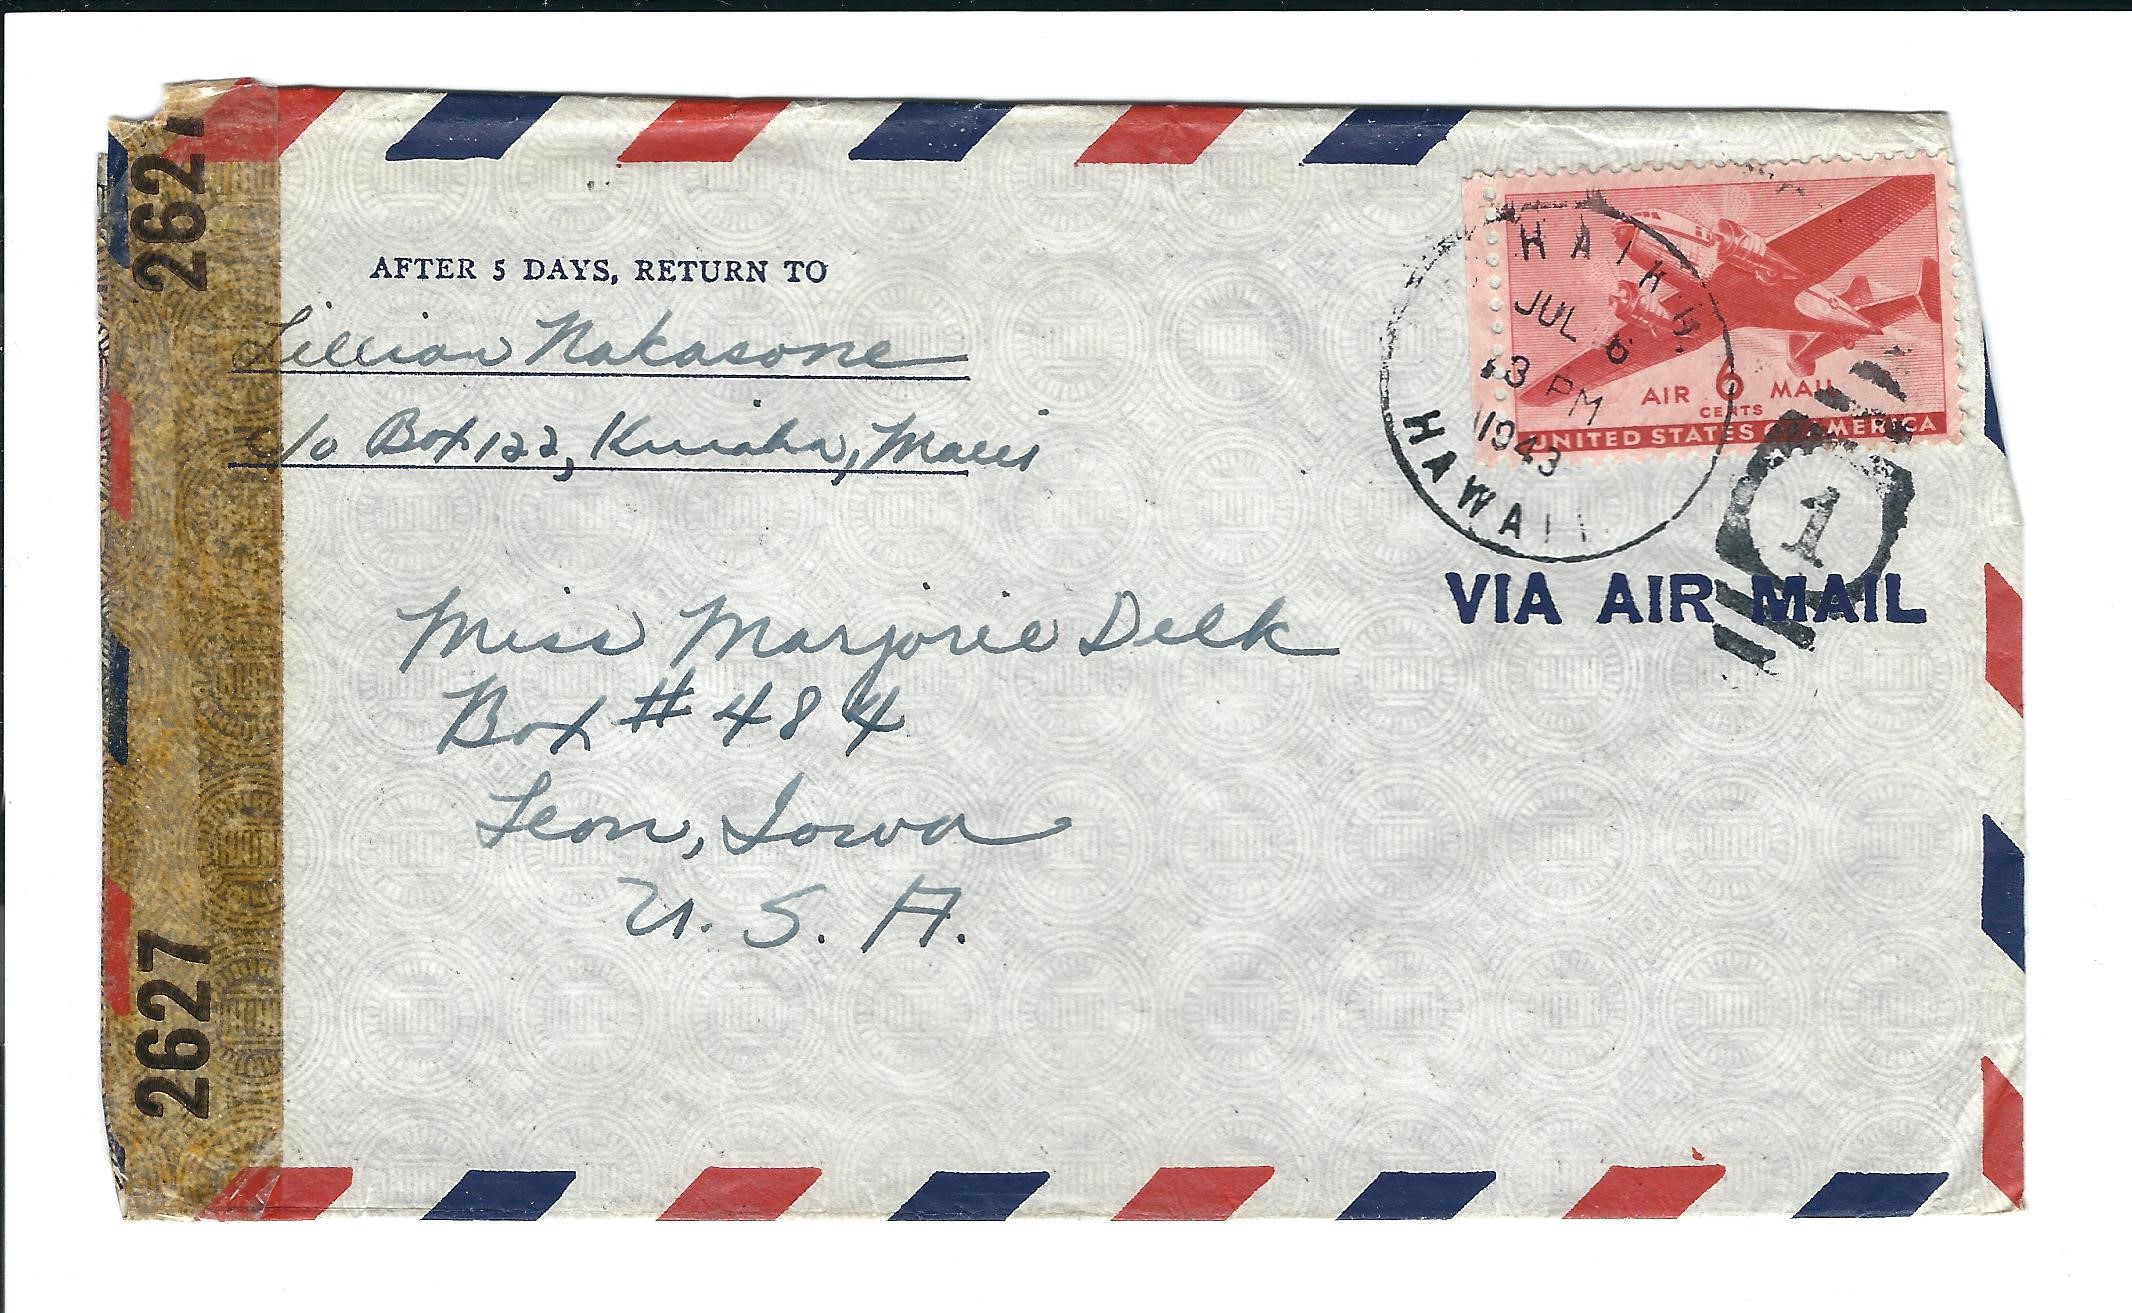 AFTER 5 DAYS, RETURN TO
Lillian Nakasone
c/o Box 122, Kuiaha, Maui
HAIKU
JUL 6
3 PM
1943
HAWAII
AIR 6 MAIL
CENTS
UNITED STATES OF AMERICA
1
VIA AIR MAIL
Miss Marjorie Delk
Box #484
Leon, Iowa
U. S. A.
262
2627